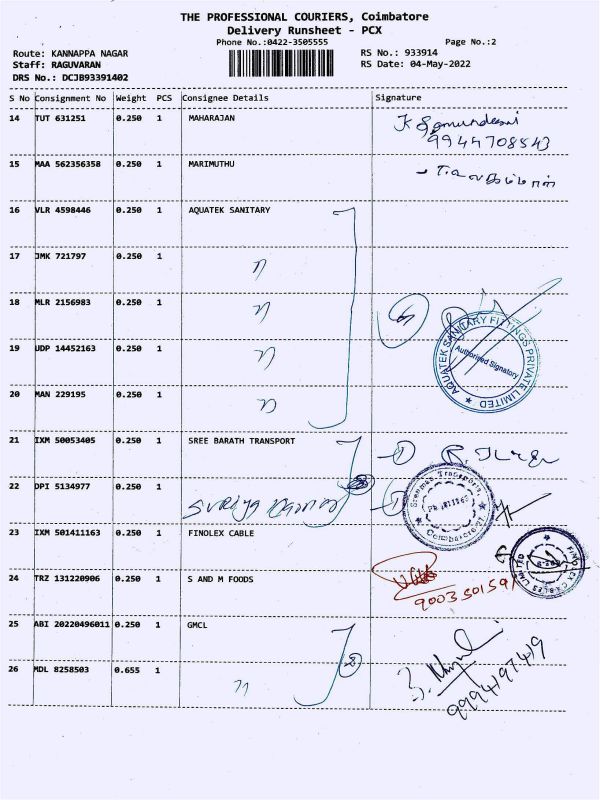 THE PROFESSIONAL COURIERS, Coimbatore
Delivery Runsheet - PCX
Phone No.:0422-3505555 Page No.:2
Route: KANNAPPA NAGAR RS No.: 933914
Staff: RAGUVARAN RS Date: 04-May-2022
DRS No.: DCJB93391402
S No Consignment No Weight PCS Consignee Details Signature
14 TUT 631251 0.250 1 MAHARAJAN
9944708543
15 MAA 562356358 0.250 1 MARIMUTHU
16 VLR 4598446 0.250 1 AQUATEK SANITARY
17 JMK 721797 0.250 1
18 MLR 2156983 0.250 1
AQUATEK SANITARY FITTINGS PRIVATE LIMITED
Authorised Signatory
19 UDP 14452163 0.250 1
20 MAN 229195 0.250 1
21 IXM 50053405 0.250 1 SREE BARATH TRANSPORT
22 DPI 5134977 0.250 1
Coimbatore
23 IXM 501411163 0.250 1 FINOLEX CABLE
FINOLEX CABLES LIMITED
24 TRZ 131220906 0.250 1 S AND M FOODS
25 ABI 20220496011 0.250 1 GMCL
26 MDL 8258503 0.655 1
9994197419